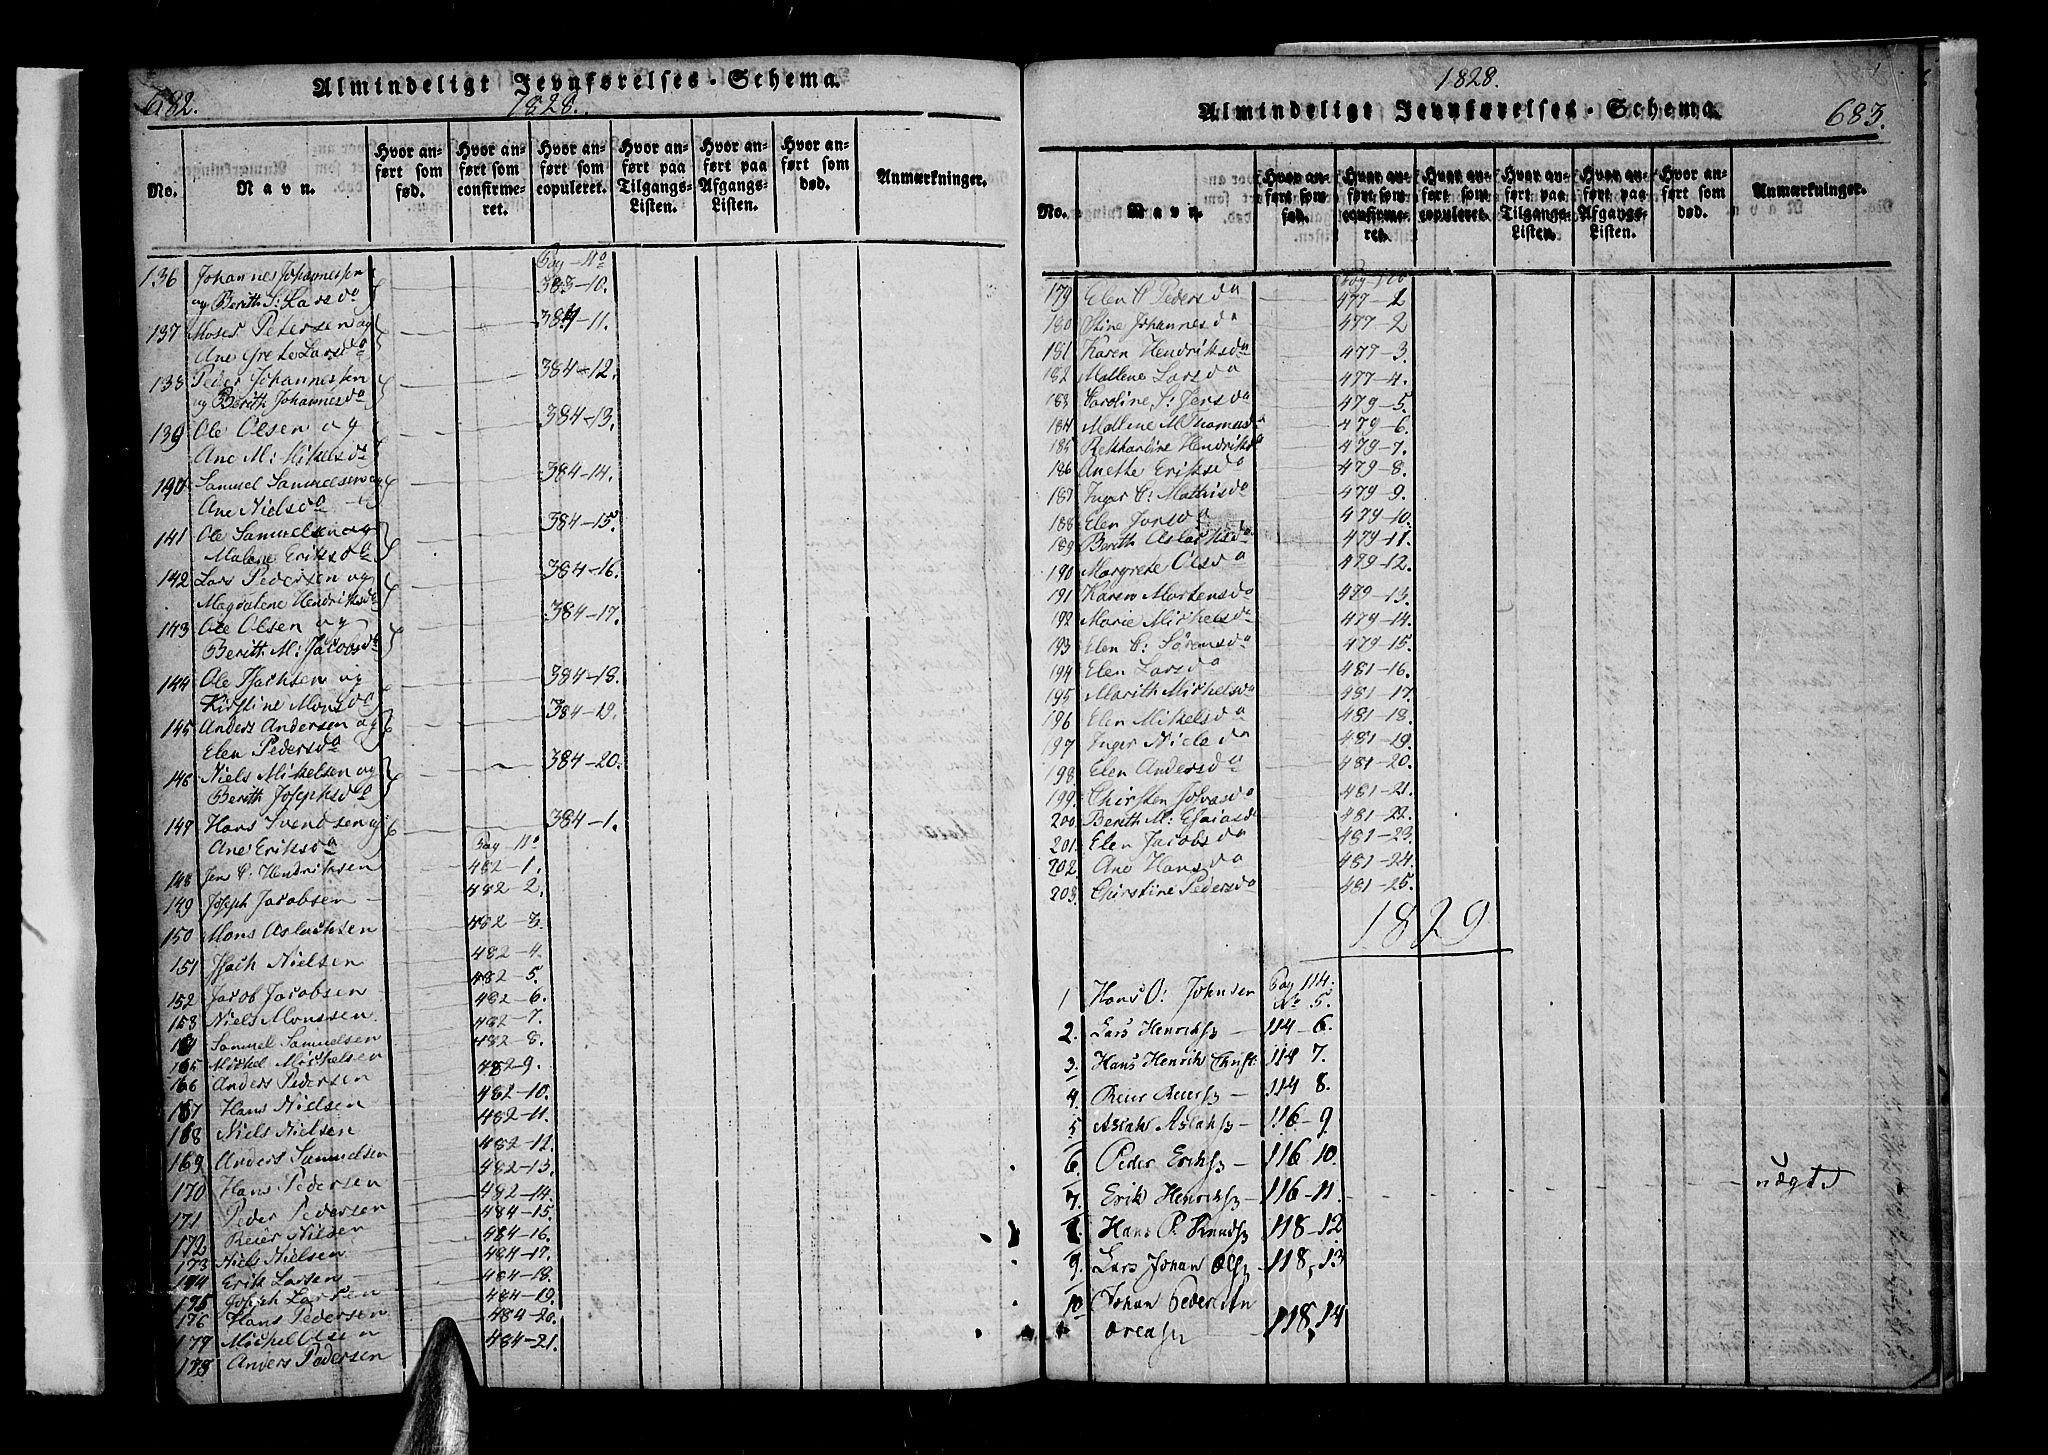 682.
Almindeligt Jevnførelses-Schema.
1828.
No.
Navn.
Hvor anført som fød.
Hvor anført som confirmeret.
Hvor anført som copuleret.
Hvor anført paa Tilgangs-Listen.
Hvor anført paa Afgangs-Listen.
Hvor anført som død.
Anmærkninger.
Pag - No
136 Johannes Johannessen 383-10.
og Berith S: Larsda
137 Moses Petersen og 384-11.
Ane Grete Larsda
138 Peder Johannessen 384-12.
og Berith Johannesda
139 Ole Olsen og 384-13.
Ane M: Mikelsda
190 Samuel Samuelsen og 384-14.
Ane Nielsda
141 Ole Samuelsen og 384-15.
Malene Eriksda
142 Lars Pedersen og 384-16.
Magdalene Hendriksda
143 Ole Olsen og 384-17.
Berith M: Jacobsda
144 Ole Isachsen og 384-18.
Kirstine Monsda
145 Anders Andersen og 384-19.
Elen Pedersda
146 Niels Mikelsen og 384-20.
Berith Josephsda
147 Hans Svendsen og 384-1.
Ane Eriksda
Pag No
148 Jens C. Hendriksen 482-1.
149 Joseph Jacobsen 482-2.
150 Mons Aslachsen 482-3.
151 Isach Nielsen 482-4.
152 Jacob Jacobsen 482-5.
158 Niels Monssen 482-6.
Samuel Samuelsen 482-7.
165 Mickel Mickelsen 482-8.
166 Anders Pedersen 482-9.
167 Hans Nielsen 482-10.
168 Niels Nielsen 482-11.
169 Anders Samuelsen 482-12.
170 Hans Pedersen 482-13.
171 Peder Pedersen 482-14.
172 Reier Nilsen 484-15.
173 Niels Nielsen 484-16.
174 Erik Larsen 484-17.
175 Joseph Larsen 484-18.
176 Hans Pedersen 484-19.
177 Mickel Olsen 484-20.
178 Anders Pedersen 484-21.
1828.
Almindeligt Jevnførelses-Schema.
683.
No.
Navn.
Hvor anført som fød.
Hvor anført som confirmeret.
Hvor anført som copuleret.
Hvor anført paa Tilgangs-Listen.
Hvor anført paa Afgangs-Listen.
Hvor anført som død.
Anmærkninger.
Pag No
179 Elen P Pedersda 477-1
180 Stine Johannesda 477-2
181 Karen Hendriksda 477-3.
182 Mallene Larsda 477-4.
183 Caroline S: Jensda 479-5.
184 Mallene M Thomasda 479-6.
185 Hendriksda 479-7.
186 Anethe Eriksda 479-8.
187 Inger C: Mathisda 479-9.
188 Elen Jonsda 479-10.
189 Berith Aslachsda 479-11.
190 Margrete Olsda 479-12.
191 Karen Mortensda 479-13.
192 Marie Mickelsda 479-14.
193 Elen C: Sørensda 479-15.
194 Elen Larsda 481-16.
195 Marith Mickelsda 481-17.
196 Elen Mikelsda 481-18.
197 Inger Nielsda 481-19.
198 Elen Andersda 481-20.
199. Chirsten 481-21.
200. Berith M: Esaiasda 481-22.
201. Elen Jacobsda 481-23.
202. Ane Hansda 481-24.
203. Chirstine Pedersda 481-25.
1829
1 Hans O: Johnsen Pag 114. No 5.
2. Lars Henrichs 114-6.
3. Hans Henrik Christ: 114 7.
4. Reier Reiers 114 8.
5 Aslak Aslaks 116-9
6. Peder Eriks 116 10.
7. Erik Henrichs 116-11 uægte
8. Hans P. Knuds 118-12
9. Lars Johan Ols 118,13
10 Johan Pedersen
118,14